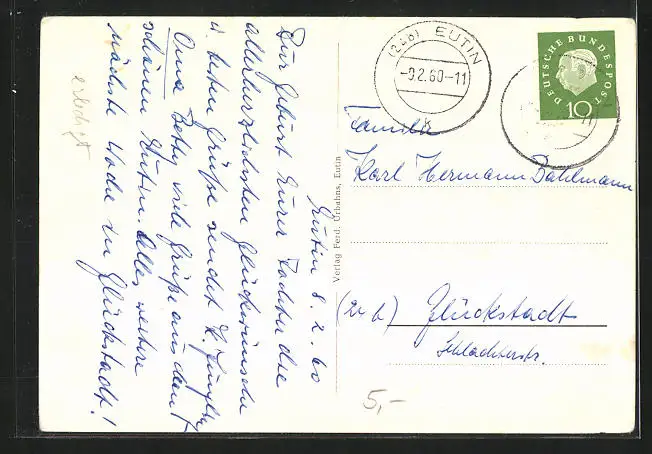 Eutin 8.2.60
Zur Geburt Eurer Tochter die
allerherzlichsten Glückwünsche
u. besten Grüße sendet
Oma Betty viele Grüße aus dem
schönen Eutin. Alles weitere
nächste Woche in Glückstadt!
erledigt
Verlag Ferd. Urbahns, Eutin
(24b) EUTIN
-9.2.60-11
DEUTSCHE BUNDESPOST
10
Familie
Karl Hermann Dahlmann
(24b) Glückstadt
Schlachterstr.
5,-